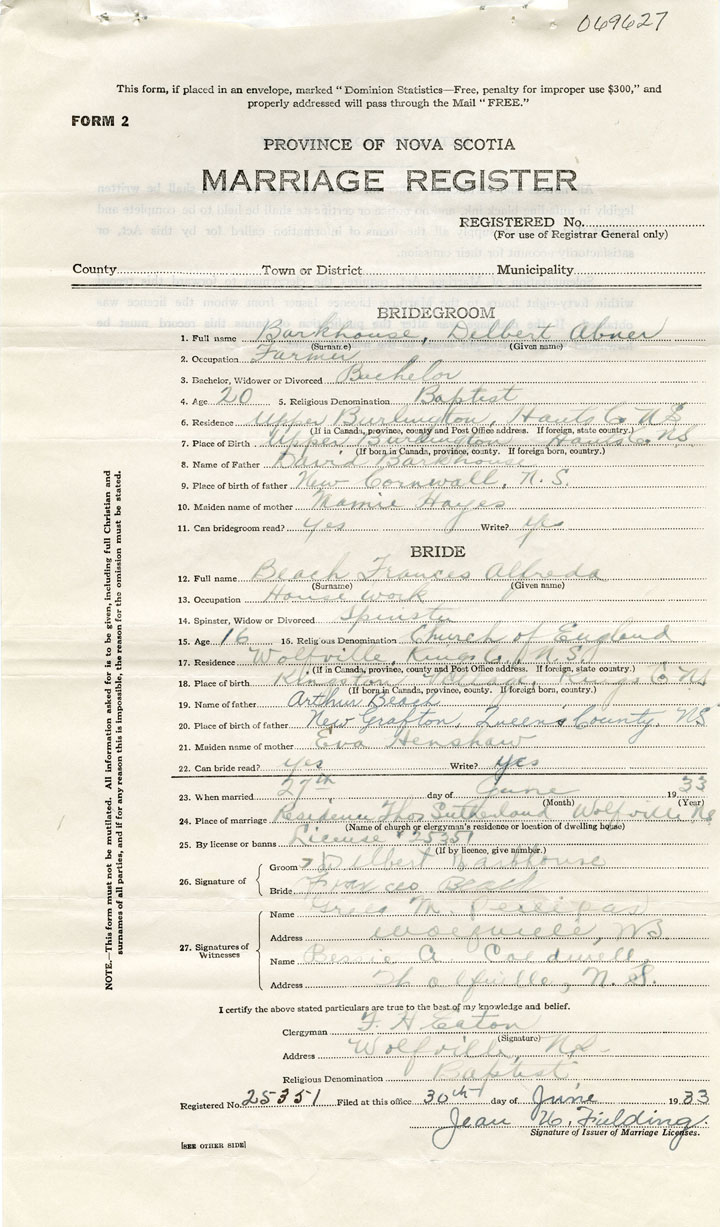 069627
This form, if placed in an envelope, marked "Dominion Statistics—Free, penalty for improper use $300," and
properly addressed will pass through the Mail "FREE."
FORM 2
PROVINCE OF NOVA SCOTIA
MARRIAGE REGISTER
REGISTERED No.
(For use of Registrar General only)
County Town or District Municipality
BRIDEGROOM
1. Full name Barkhouse, Delbert Abner
(Surname) (Given name)
2. Occupation Farmer
3. Bachelor, Widower or Divorced Bachelor
4. Age 20 5. Religious Denomination Baptist
6. Residence Upper Burlington, Hants Co NS
(If in Canada, province, county and Post Office address. If foreign, state country.)
7. Place of Birth Upper Burlington Hants Co NS
(If born in Canada, province, county. If foreign born, country.)
8. Name of Father David Barkhouse
9. Place of birth of father New Cornwall, N.S.
10. Maiden name of mother Mamie Hayes
11. Can bridegroom read? yes Write? yes
BRIDE
12. Full name Beach Frances Alfreda
(Surname) (Given name)
13. Occupation House work
14. Spinster, Widow or Divorced Spinster
15. Age 16 16. Religious Denomination Church of England
17. Residence Wolfville, Kings Co, N.S.
(If in Canada, province, county and Post Office address. If foreign, state country.)
18. Place of birth Kingston Kings Co NS
(If born in Canada, province, county. If foreign born, country.)
19. Name of father Arthur Beach
20. Place of birth of father New Grafton, Queens County, NS
21. Maiden name of mother Eva Henshaw
22. Can bride read? yes Write? yes
23. When married 27th day of June 1933
(Month) (Year)
24. Place of marriage Residence Thos Sutherland Wolfville NS
(Name of church or clergyman's residence or location of dwelling house)
25. By license or banns License # 25351
(If by licence, give number.)
26. Signature of
Groom Delbert Barkhouse
Bride Frances Beach
27. Signatures of Witnesses
Name M.
Address Wolfville, NS.
Name Bessie A. Caldwell
Address Wolfville, N.S.
I certify the above stated particulars are true to the best of my knowledge and belief.
Clergyman F. H Eaton
(Signature)
Address Wolfville, NS.
Religious Denomination Baptist
Registered No. 25351 Filed at this office 30th day of June 1933
Jean W. Fielding
Signature of Issuer of Marriage Licenses.
[SEE OTHER SIDE]
NOTE.—This form must not be mutilated. All information asked for is to be given, including full Christian and
surnames of all parties, and if for any reason this is impossible, the reason for the omission must be stated.